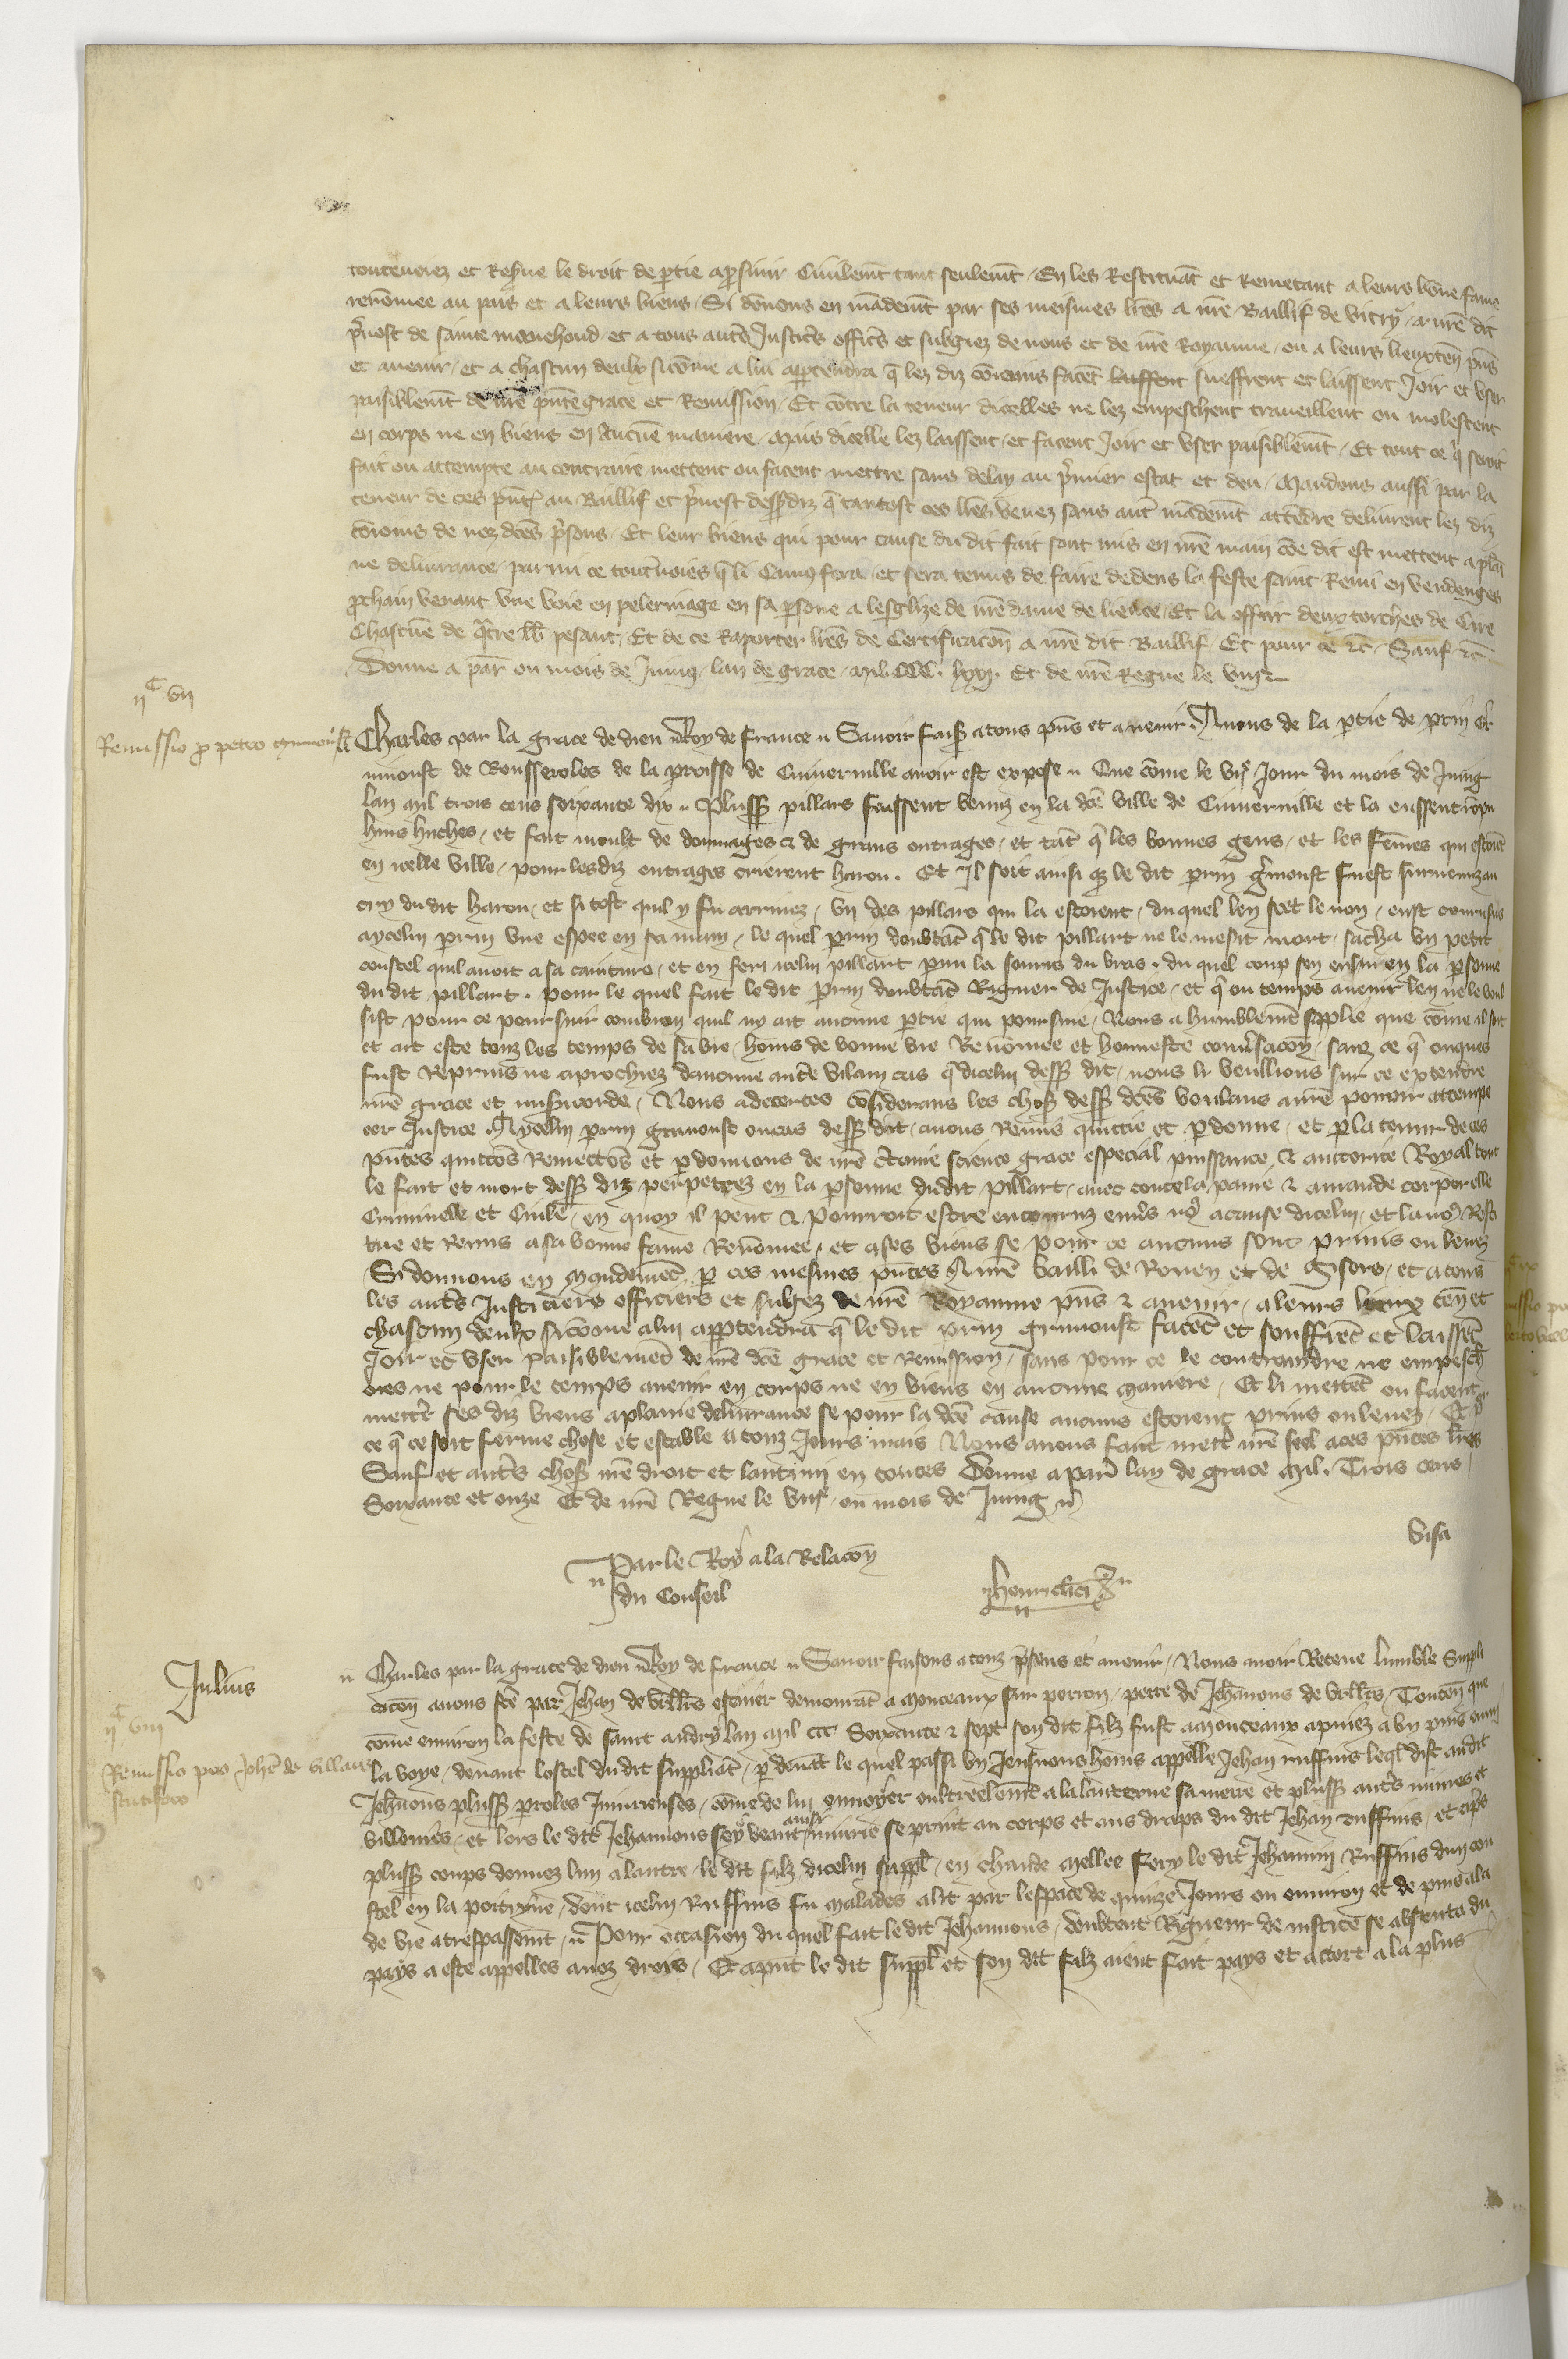 toutevoiez et Reserve le droit de ptie a psuir Civilemt tant seulemt / En les Restituāt et Remetant a leurs bōne fame
renōmee au pais et a leurs biens / Si dōnons en mādemt par ses meismes lrēs a nrē Baillif de vitry / a nrē dit
pvost de sainte manehoud / et a tous autrs Justicrs officrs et subgiez de nous et de nrē Royaume / ou a leurs lieuxten pns
et avenir / et a chascun deulx sicōme a lui aptendra q̄ lez diz cōioins facēt laissent sueffrent et laissent Joir et user
paisiblemt de nrē pnte grace et Remission / Et cōtre la teneur dicelles ne lez empeschent traveillent ou molestent
en corps ne en biens en Aucune maniere / Mais dicelle lez laissent / et facent Joir et User paisiblemt / Et tout ce q̄ seroit
fait ou attempte au contraire mettent ou facent mettre sans delay au pmier estat et deu / Mandons aussi par la
teneur de ces pnt au Baillif et pvost dessdiz q̄ tantost ces lrēs veuez sans autr mādemt attēdre delivrent lez diz
cōioins de noz dtēs psons / Et leur biens qui pour cause du dit fait sont mis en nrē main cōe dit est mettent a plai
ne delivrance / parmi ce toutvoies q̄ li Camus fera / et sera tenus de faire dedens la feste saint Remi en vendenges
pchain venant une voie en pelerinage en sa psone a lesglize de nrē dame de lience / Et la offrir deux torches de Cire
Chascune de qtre lb pesant / Et de ce Raporter lrēs de Certificacōn a nrē dit Baillif / Et pour ce etc / Sauf etc
Donne a par ou mois de Juing / lan de grace / Mil CCC lxxi. Et de nrē Regne le viije
ijC vij
Remissio p petro grimoust
Charles par la grace de dieu Roy de france Savoir fais a tous pns et avenir / A nous de la ptie de prin Gri
moust de Rousseroles de la proisse de Cuiverville avoir est expose Que cōme le vije Jour du mois de Juing
lan mil trois cens soixante dix Pluss pillars feussent venuz en la dcē ville de Cuiverville et la eussent rōpu
huis huches / et fait moult de dommages & de grans outrages / et tāt q̄ les bonnes gens / et les fēmes qui estoiēt
en icelle ville / pour lesdiz outrages crierent harou. Et Il soit ainsi q̄ le dit prin grimoust fust survenuz au
cry du dit harou / et si tost quil y fu arrivez / un des pillars qui la estoient / du quel len scet le nom / eust couru sus
aycelui prin une espee en sa main / le quel prin doubtāt q̄ le dit pillart ne le meist mort / sacha un petit
coustel quil avoit a sa cainture / et en feri icelui pillart pmi la souris du bras. du quel coup sen ensui en la psonne
du dit pillart. pour le quel fait le dit prin doubtāt Rigueur de Justice / et q̄ ou temps avenir len ne le voul
sist pour ce poursuir combien quil ny ait aucune ptie qui poursuie / Nous a humblemt supplie que cōme il soit
et ait este touz les temps de sa vie / homs de bonne vie Renōmee et honneste convsacōn / sanz ce q̄ onques
fust Reprins ne aprochiez daucune autre vilain cas q̄ dicelui dess dit / nous li veullions sur ce extendre
nrē grace et misicorde / Nous adecertes cōsiderans les choses dess dtēs voulans a nrē povoir attempe
rer Justice / Aycelui prin grimoust ou cas dess dit / avons Remis quittie et pdonne / et p la teneur de ces
pntes quittōs Remettōs et pdonnons de nrē ctaine science grace especial puissance & auctorite Royal tout
le fait et mort dess diz perpetrez en la psonne dudit pillart / avec toute la paine & amande corporelle
Criminelle et Civile / en quoy il peut & pourroit estre encouruz envs no9 acause dicelui / et lavo9 Resti
tue et Remis a sa bonne fame Renōmee / et a ses biens se pour ce aucuns sont prins ou levez
Si donnons en mandemēt p ces mesmes pntes A nrē bailli de Rouen et de Gisors / et a touz
les autrs Justiciers officiers et subgez de nrē Royaume pns & avenir / a leurs lieux ten et
chascun deulx sicōme a lui aptendra q̄ le dit prin grimoust facēt et souffrēt et laissēt
Joir et user paisiblemēt de nrē dcē grace et Remission / sans pour ce le contraindre ne empesch
ores ne pour le temps avenir en corps ne en biens en aucune maniere / Et li mettēt ou facent
mettr ses diz biens a plaine delivrance se pour la dcē cause aucuns estoient prins ou levez / Et q̄
ce q̄ ce soit ferme chose et estable a touz Jours mais Nous avons fait mettr nrē seel a ces pntes lrēs
Sauf et autrs choses nrē droit et lautrui en toutes Donne a par lan de grace Mil. Trois cens
Soixante et onze Et de nrē Regne le viije / ou mois de Juing
Visa
Par le Roy a la Relacōn
du Conseil
henrichi
Julius
Charles par la grace de dieu Roy de france Savoir faisons a touz psens et avenir / Nous avoir Receue lumble Suppli
cacōn avons fcē par Jehan de villrs escuier demourāt a monceaux sur perron / pere de Jehānons de villrs / Contenāt que
cōme environ la feste de saint andry lan Mil ccc Soixante & sept son dit filz fust a monceaux apuiez a un
ijC viij
Remissio pro Johē de villars
scutifero
la voye / devant lostel du dit suppliāt / p devāt le quel passi un Jeusnons homs appelle Jehan ruffins leql dist audit
Jehānons pluss paroles Iniurieuses / cōme de lui envoyer oultreelemt a la lanterne sa mere et pluss autrs iniures et
villenies / et lors le dit Jehannons soy veant ainsi iniurie se print au corps et aus draps du dit Jehan ruffins / et aps
pluss coups donnez lun a lautre / le dit filz dicelui suppl / en chaude mellee fery le dit Jehannin Ruffins dun cou
stel en la poitrine / dont icelui Ruffins fu malades a lit par lespace de quinze Jours ou environ et de puis ala
de vie a trespassemt / Pour occasion du quel fait le dit Jehannons / doubtent Rigueur de iustice se absenta du
pays a este appelles a noz drois / Et apnt le dit suppl et son dit filz aient fait pays et accort a la plus